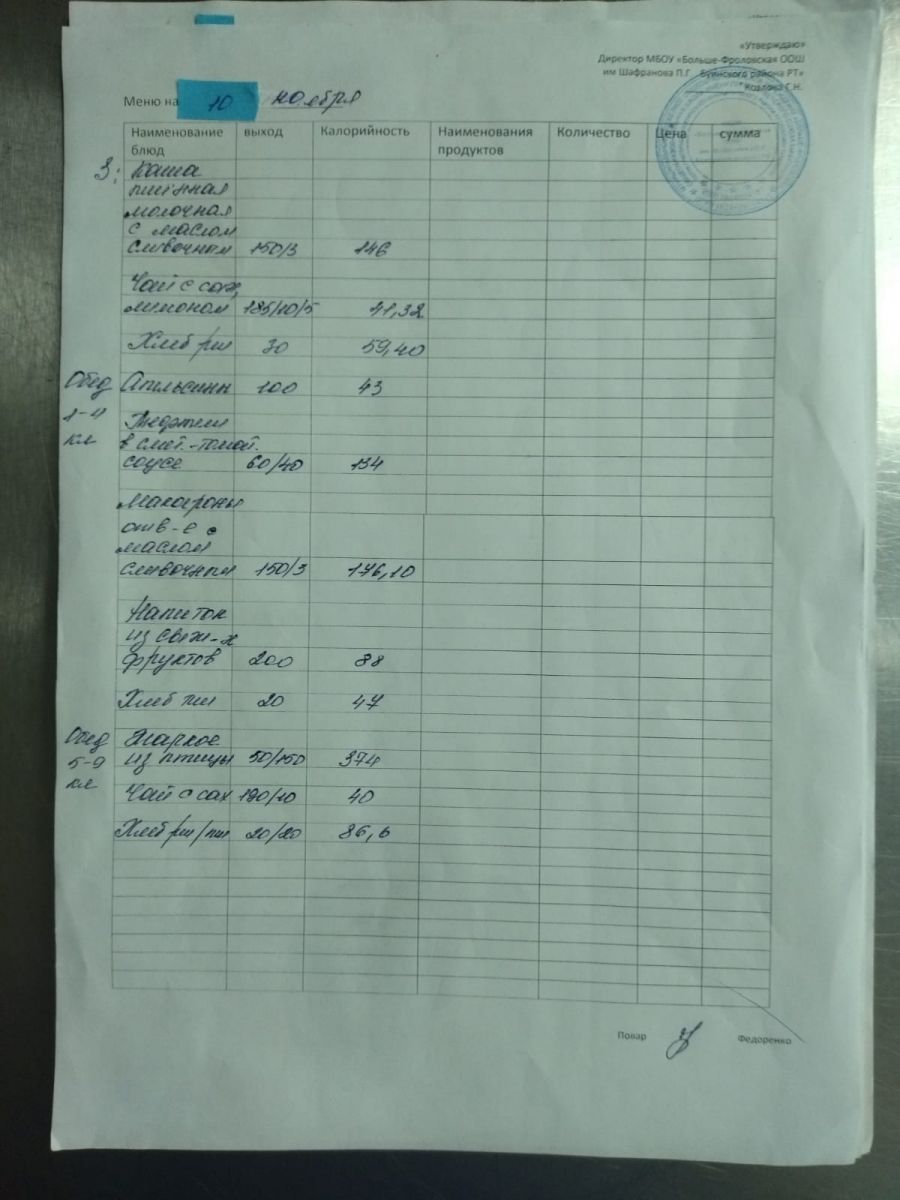 «Утверждаю»
Директор МБОУ «Больше-Фроловская ООШ
им Шафранова П.Г. Буинского района РТ»
Козлова Г.Н.
Меню на 10 ноября
Наименование блюд выход Калорийность Наименования продуктов Количество Цена сумма
З: Каша
пшённая
молочная
с маслом
сливочным 150/3 146
Чай с сах,
лимоном 185/10/5 41,32
Хлеб рж 30 59,40
Обед Апельсины 100 43
1-4 Тефтели
кл в смет.-томат.
соусе 60/40 134
Макароны
отв-е с
маслом
сливочным 150/3 176,10
Напиток
из свеж-х
фруктов 200 88
Хлеб пш 20 47
Обед Жаркое
5-9 из птицы 50/150 374
кл
Чай с сах 190/10 40
Хлеб рж/пш 20/20 86,6
Повар Федоренко